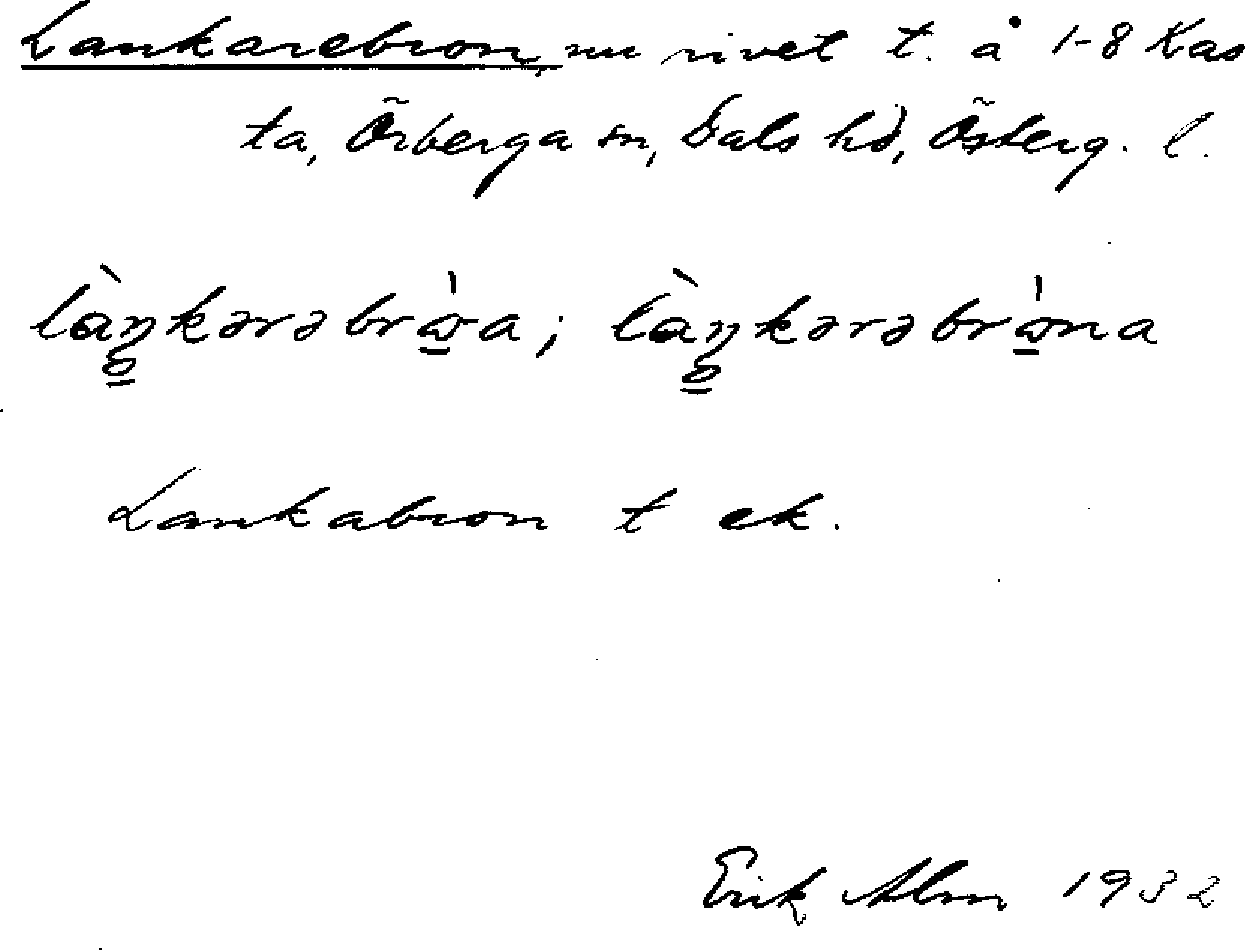 Lankarebron, nu rivet t. å 1-8 Kas
ta, Örberga sn, Dals hd, Österg. l.
làŋkərəbrɷ̀a; làŋkərəbrɷ̀na
Lankabron t ek.
Erik Alm 1932